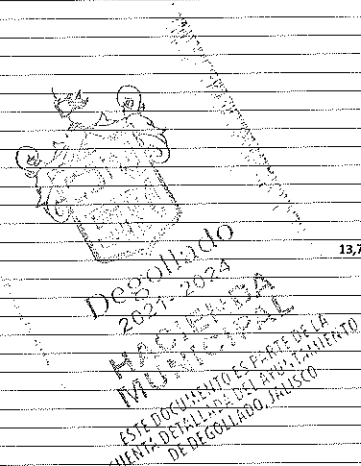 Degollado
2021-2024
13,7
HACIENDA
MUNICIPAL
ESTE DOCUMENTO ES PARTE DE LA
CUENTA DETALLADA DEL AYUNTAMIENTO
DE DEGOLLADO, JALISCO